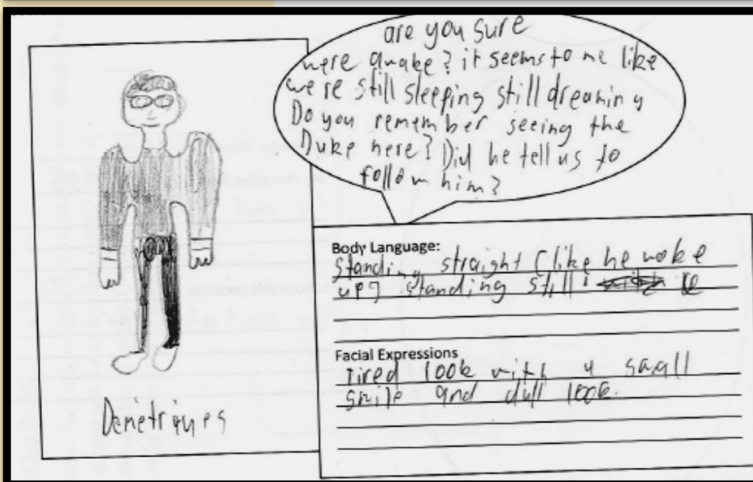 are you sure
were awake? it seems to me like
we re still sleeping still dreaming
Do you remember seeing the
Duke here? Did he tell us to
follow him?
Body Language:
Standing straight (like he woke
up) standing still
Facial Expressions
Tired look with a small
smile and dull look.